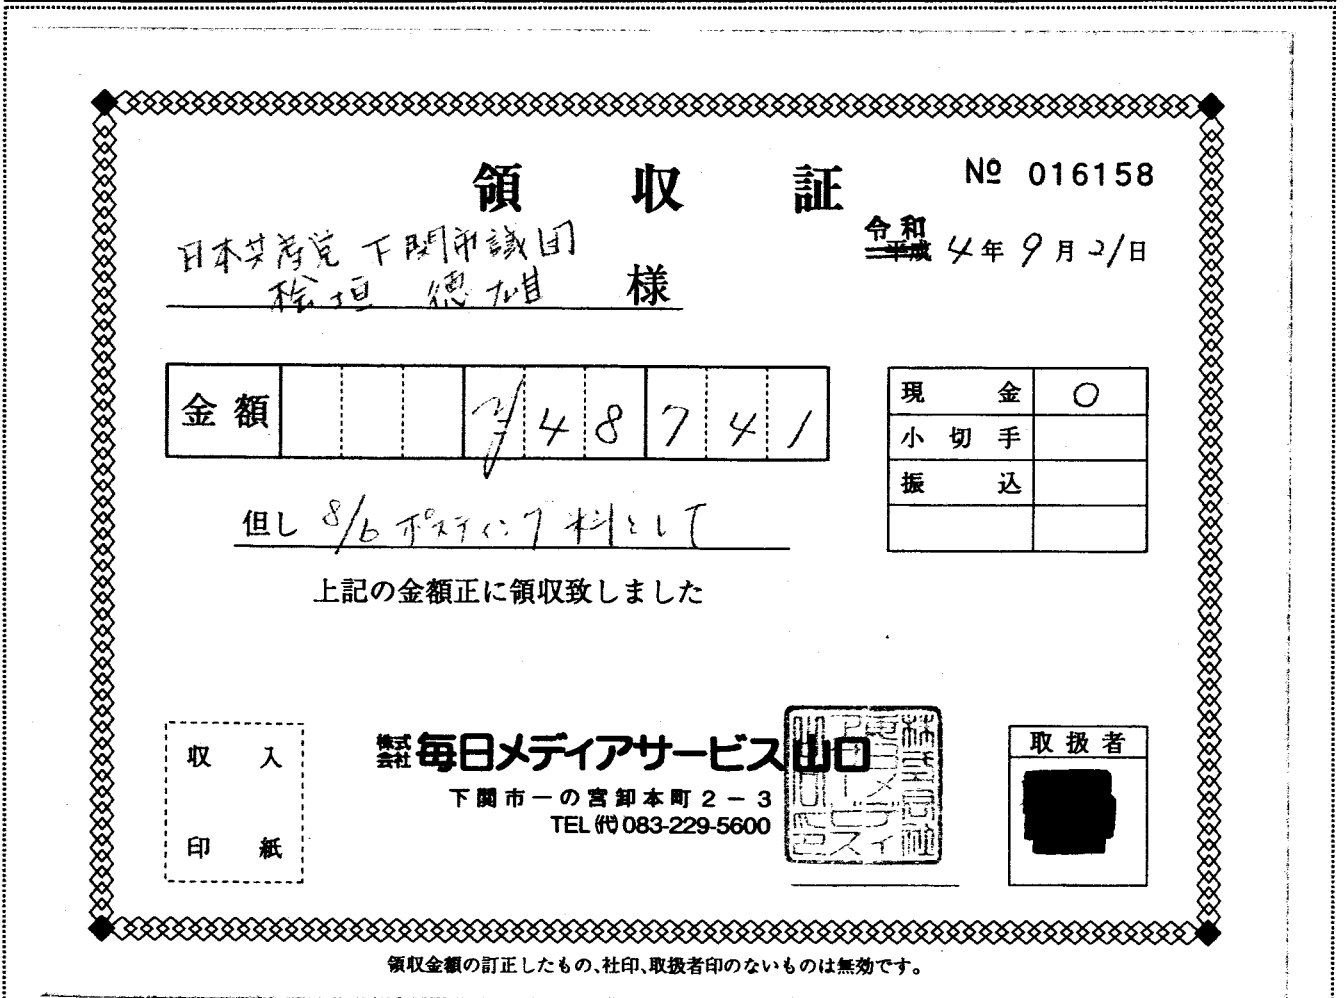 領収証
№ 016158
令和
平成 4年9月21日
日本共産党 下関市議団
桧垣 徳雄 様
金額 ¥48741
現金 ○
小切手
振込
但し 8/6 ポスティング料として
上記の金額正に領収致しました
収入
印紙
株式会社 毎日メディアサービス山口
下関市一の宮卸本町2-3
TEL(代)083-229-5600
株式会社
毎日メディ
アサービス
山口印
取扱者
領収金額の訂正したもの、社印、取扱者印のないものは無効です。